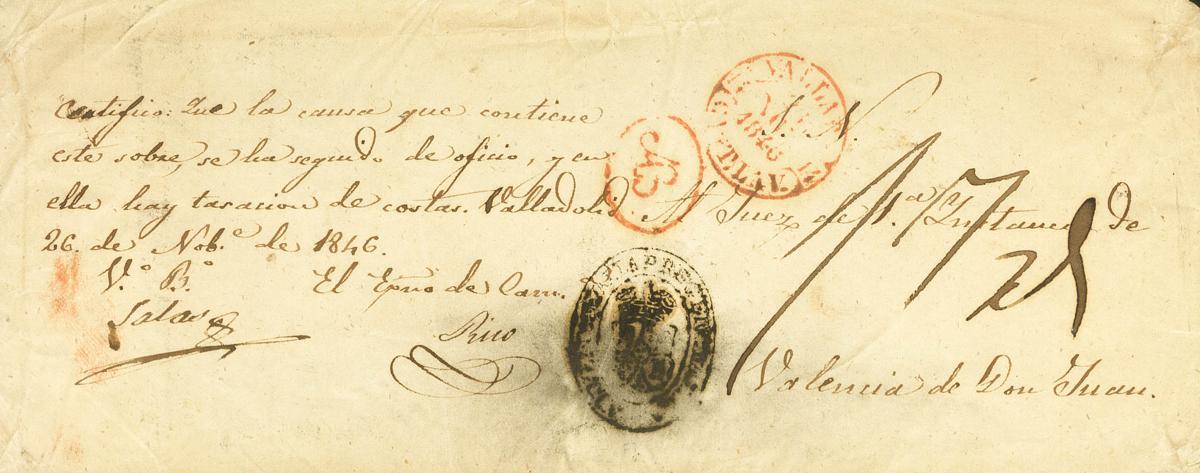 Certifico: Que la causa que contiene
este sobre, se ha seguido de oficio, y en
ella hay tasacion de costas. Valladolid
26. de Nob.e de 1846.
V.o B.o
Salas
El Esno de Cam.
Rico
S. N.
Al Juez de 1.a Instancia de
Valencia de Don Juan.
VALLAD
1846